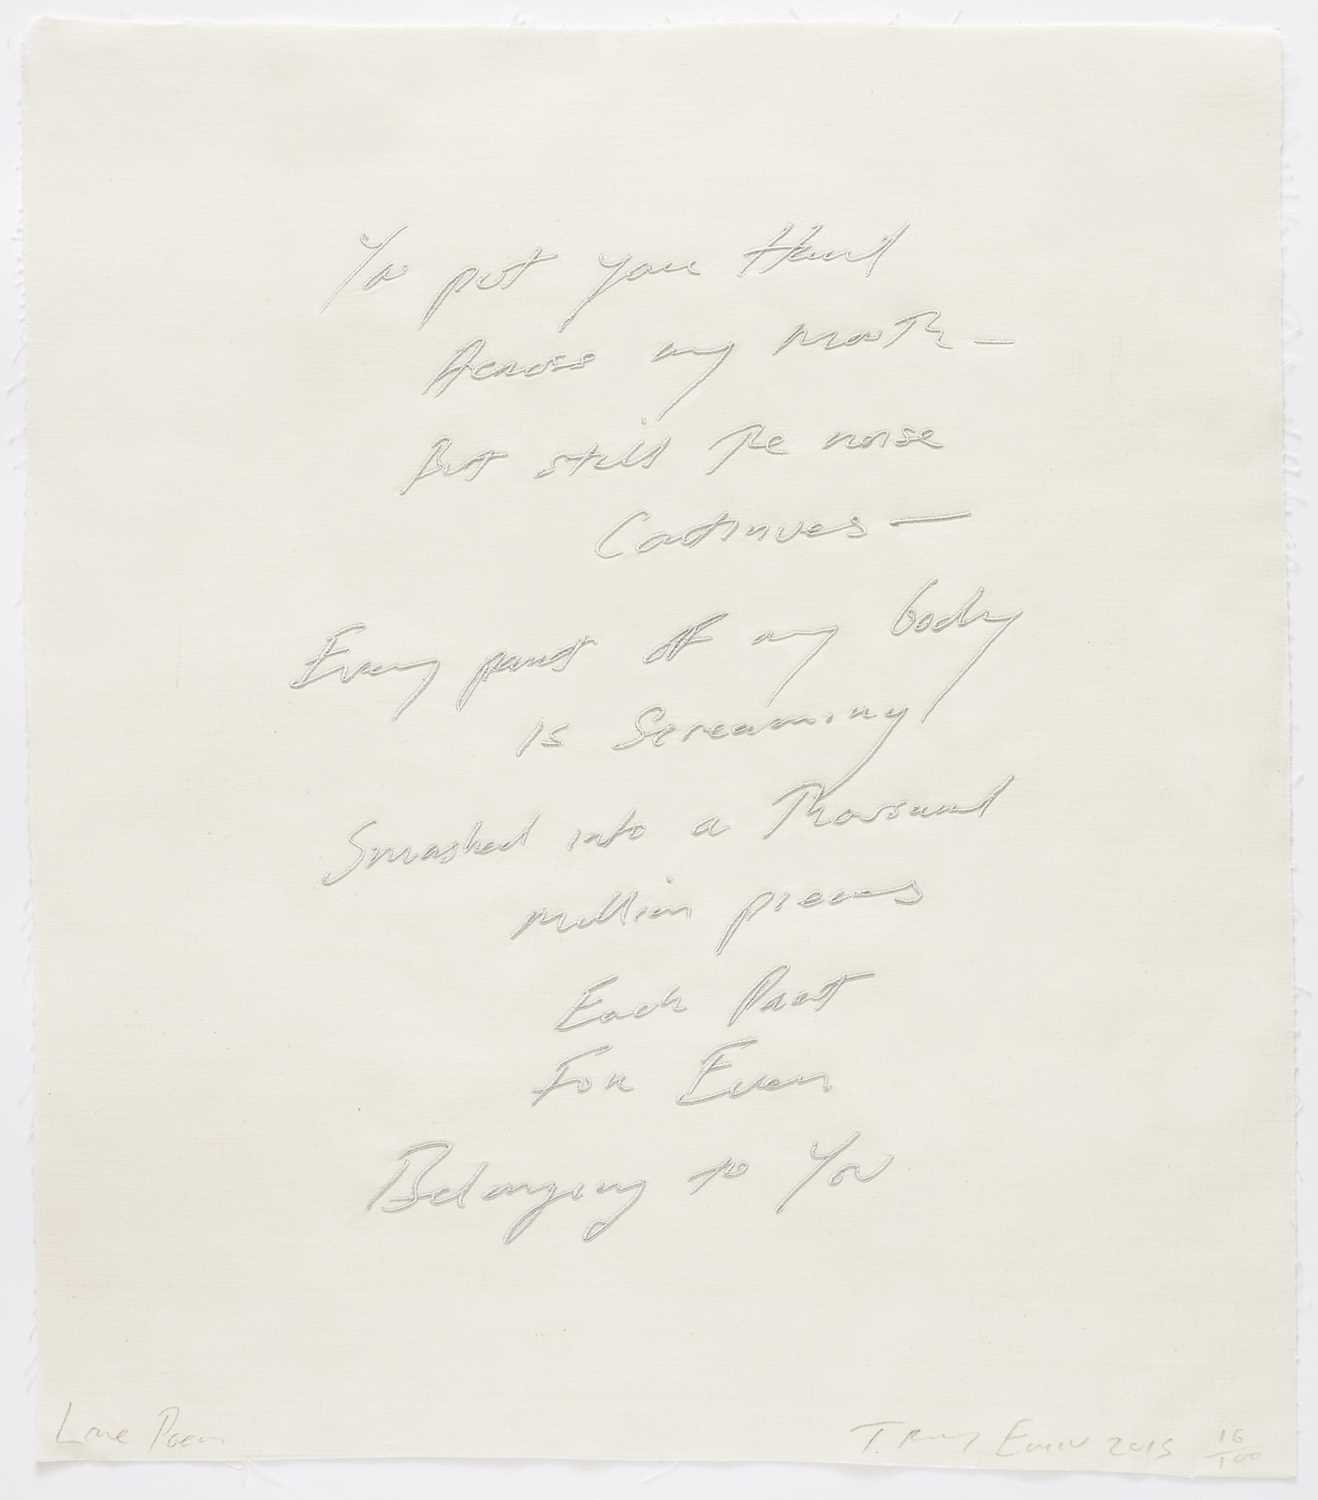 You put your Hand
Across my mouth —
But still The noise
Continues —
Every part of my body
is Screaming
Smashed into a Thousand
million pieces
Each Part
For Ever
Belonging to You
Love Poem
Tracey Emin 2015 16/100